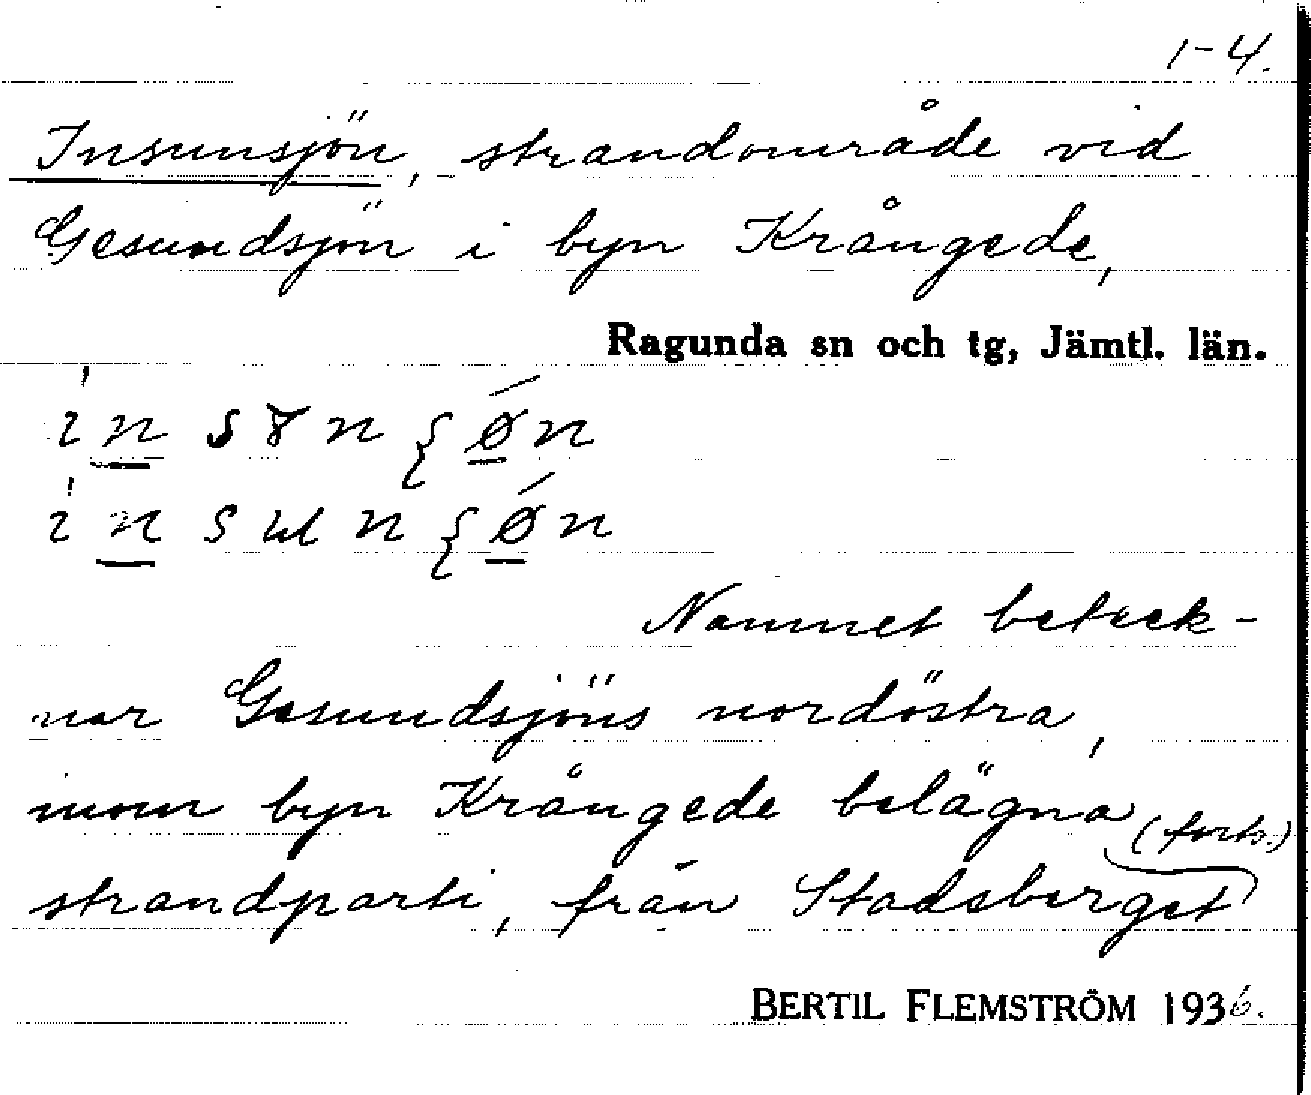 1-4.
Insunsjön, strandområde vid
Gesundsjön i byn Krångede,
Ragunda sn och tg, Jämtl. län.
Namnet beteck-
nar Gesundsjöns nordöstra,
inom byn Krångede belägna
strandparti, från Stadsberget (forts.)
BERTIL FLEMSTRÖM 1936.